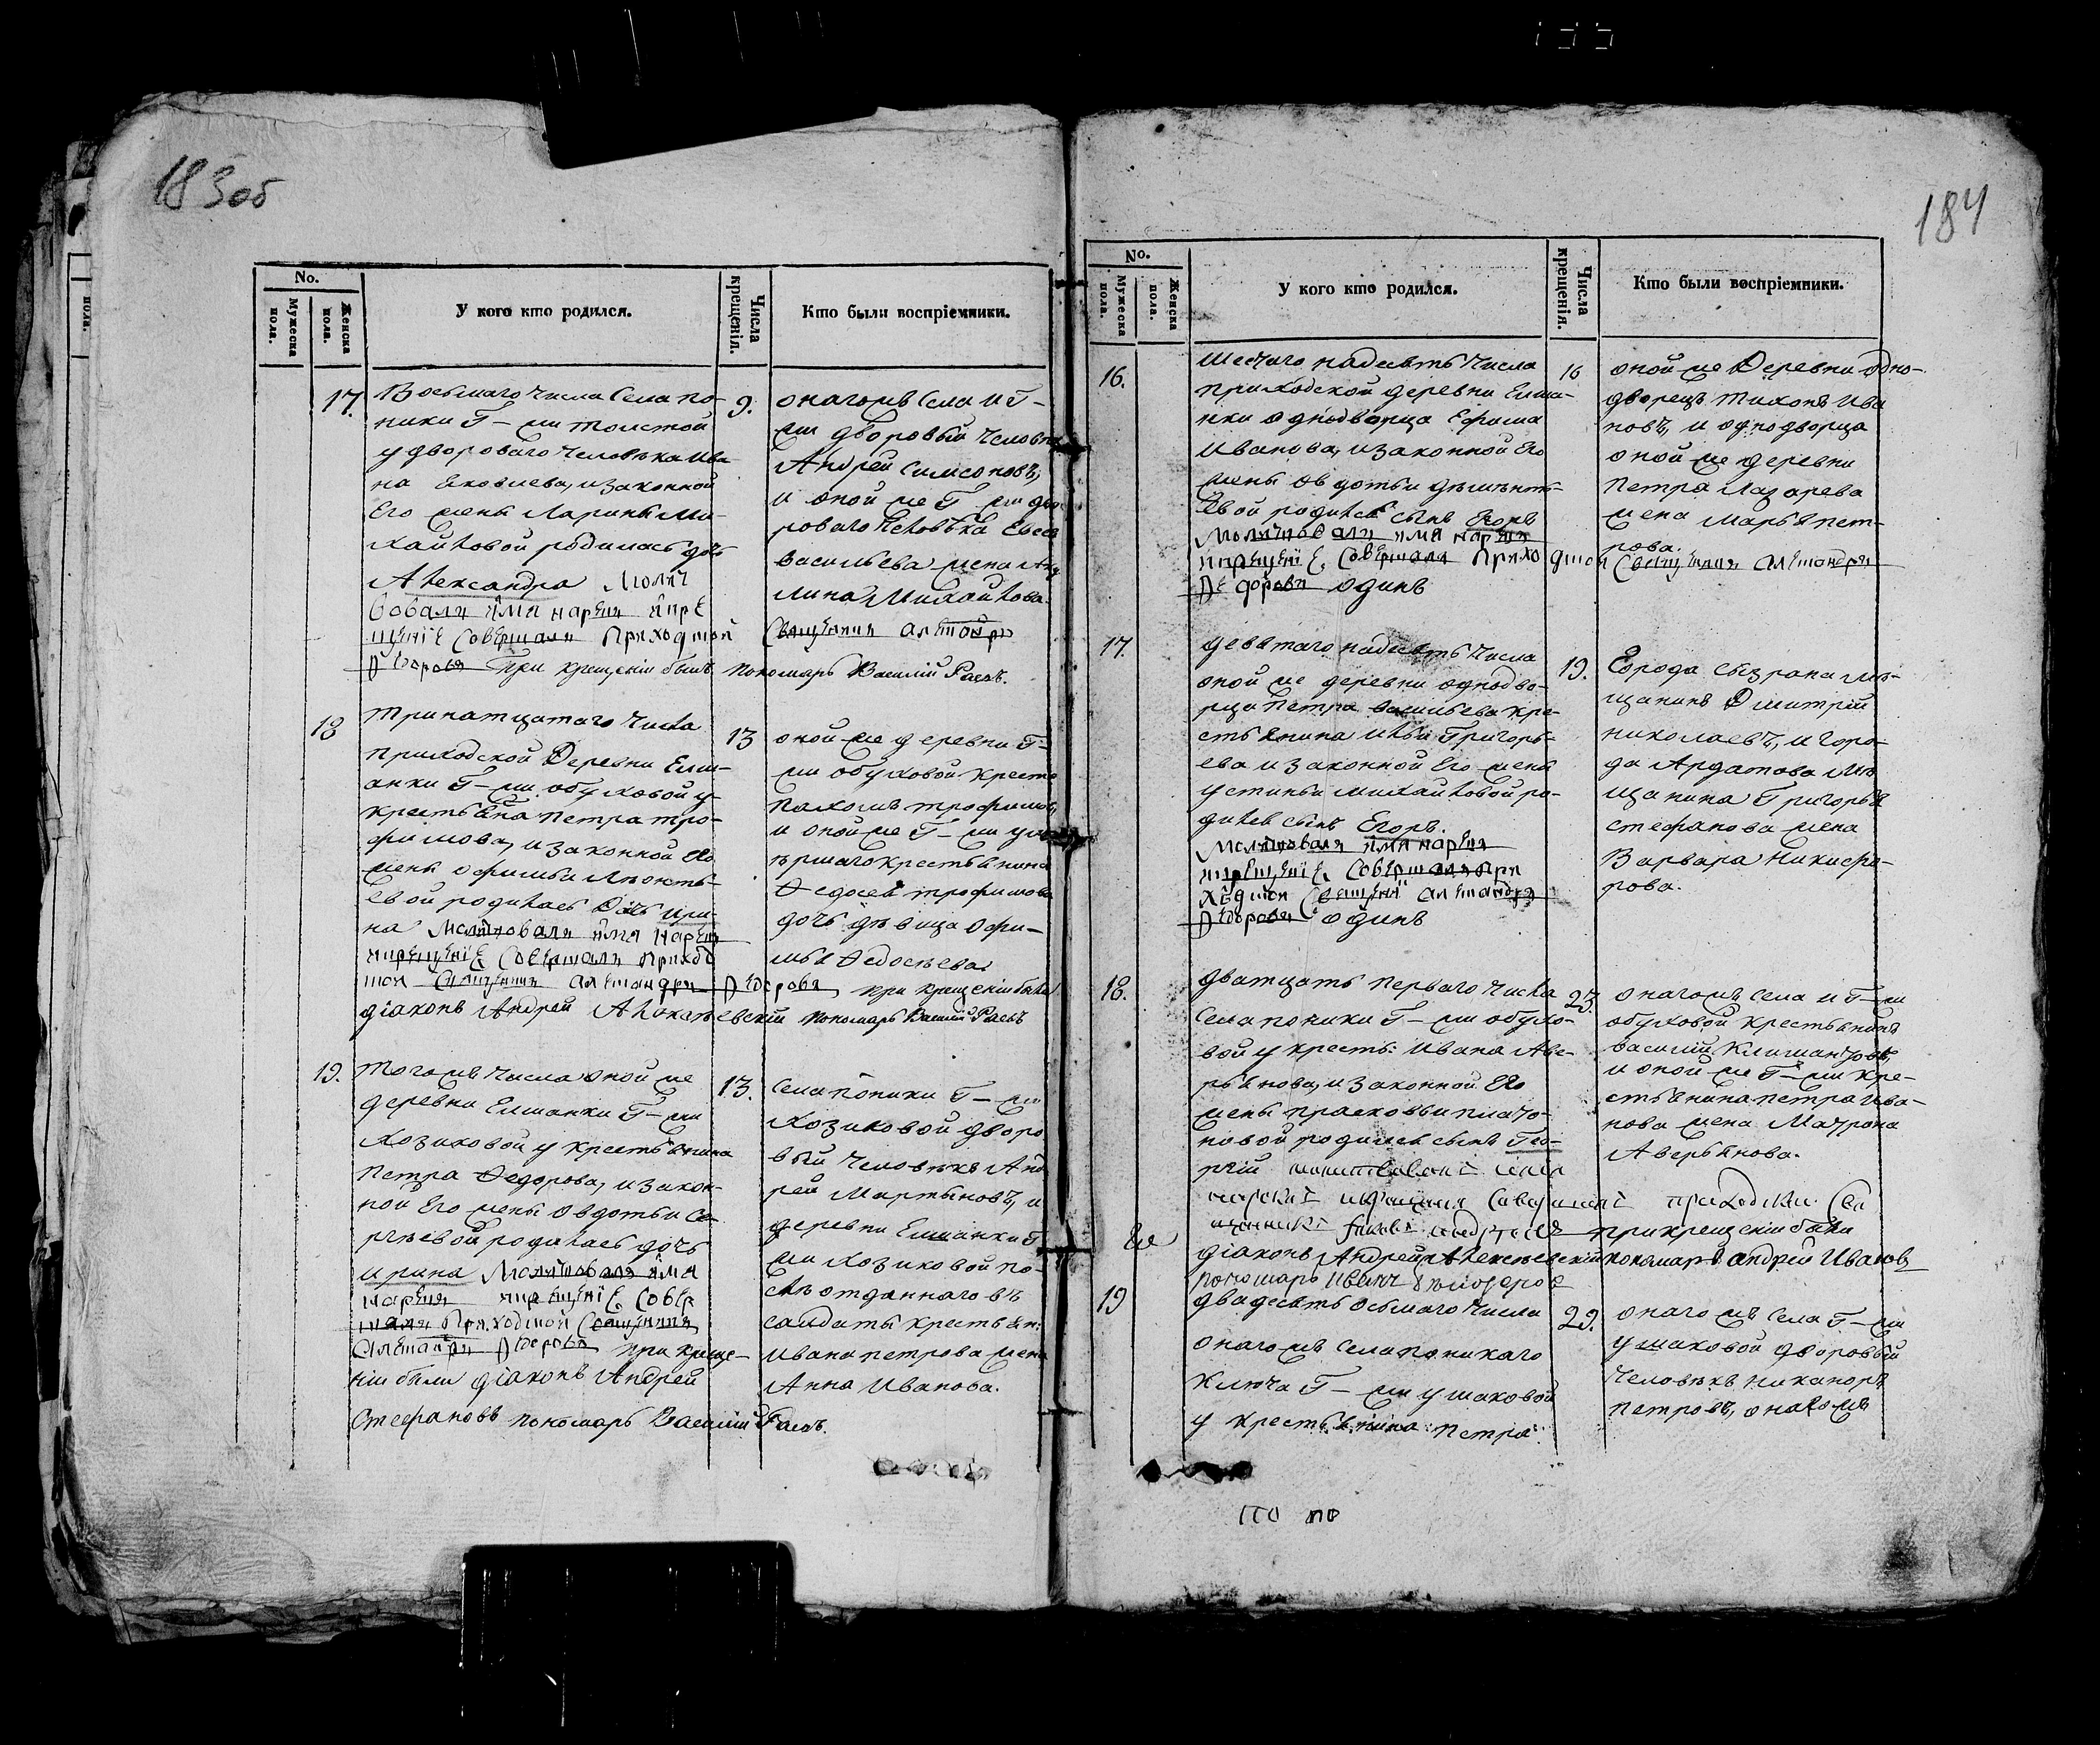 183об
No.
Мужеска пола.
Женска пола.
У кого кто родился.
Числа крещенія.
Кто были воспріемники.
17.
Восьмаго числа села По-
ники Г-жи Толстой
у двороваго человѣка Ива
на Яковлева, и законной
Его жены Марины Ми-
хайловой родилась дочь
Александра Молит
вовали имя нарекли и кре
щеніе совершали Приходской
Федоровъ при крещеніи былъ пономарь Василій Раевъ.
9.
онагожъ села и Г-
жи дворовый человѣкъ
Андрей Симеоновъ,
и оной же Г-жи дво
роваго человѣка
Васильева жена Аку
лина Михайлова.
Священникъ Александръ
18
Тринатцатаго числа
приходской деревни Елш-
анки Г-жи Обуховой у
крестьяна Петра Тро-
фимова, и законной его
жены Офимьи Леонть-
евой родилась дочь Ири-
на Молитвовали имя нарекли
и крещеніе совершали Приход
ской священникъ Александръ Федоровъ при крещеніи были
діаконъ Андрей пономарь Василій Раевъ
13
оной же деревни Г-
жи Обуховой кресть
Пахомъ Трофимовъ,
и оной же Г-жи ум
ѣршаго крестьянина
Федосея Трофимова
дочь дѣвица Офи-
мья Федосѣева.
19.
Тогожъ числа оной же
деревни Елшанки Г-жи
Козиковой у крестьянина
Петра Федорова, и закон-
ной Его жены Овдотьи Се-
ргѣевой родилась дочь
Ирина Молитвовали имя
нарекли и крещеніе совер
шали Приходской священникъ
Александръ Федоровъ при креще-
ніи были діаконъ Андрей
Стефановъ пономарь Василій Раевъ.
13.
Села Поники Г-жи
Козиковой дворо
вый человѣкъ Анд
рей Мартыновъ, и
деревни Елшанки Г
жи Козиковой по-
слѣ отданнаго въ
салдаты крестьян:
Ивана Петрова жена
Анна Иванова.
184
No.
Мужеска пола.
Женска пола.
У кого кто родился.
Числа крещенія.
Кто были воспріемники.
16.
Шестаго надесять числа
приходской деревни Елша-
нки однодворца Ефима
Иванова, и законной Его
жены Овдотьи
родился сынъ Егоръ
Молитвовали имя нарекли
и крещеніе совершали Приходской священникъ Александръ
Федоровъ одинъ
16
оной же Деревни одно-
дворецъ Тихонъ Ива
новъ, и однодворца
оной же деревни
Петра Лазарева
жена Марья Пет-
рова.
17.
девятаго надесять числа
оной же деревни однодво-
рца Петра Васильева кре-
стьянина Ильи Григорь-
ева и законной Его жены
Устиньи Михайловой ро-
дился сынъ Егоръ.
Молитвовали имя нарекли
и крещеніе совершали При
ходской священникъ Александръ
Федоровъ одинъ
19.
Города Сызрана мѣ-
щанинъ Димитрій
Николаевъ, и горо-
да Ардатова мѣ
щанина Григорья
Стефанова жена
Варвара Никифо-
рова.
18.
дватцать перваго числа
Села Поники Г-жи Обухо-
вой у кресть: Ивана Аве-
рьянова, и законной Его
жены Прасковьи Плато-
новой родился сынъ Гео-
ргій
при крещеніи были
діаконъ Андрей пономарь Андрей Ивановъ
пономарь Иванъ
23.
онагожъ села и Г-жи
Обуховой крестьянинъ
Василій
и оной же Г-жи кре-
стьянина Петра Ива-
нова жена Матрона
Аверьянова.
19
двадесять осьмаго числа
онагожъ села Поникаго
Ключа Г-жи Ушаковой
у крестьянина Петра
29.
онагожъ села Г-жи
Ушаковой дворовый
человѣкъ Никаноръ
Петровъ, онагожъ